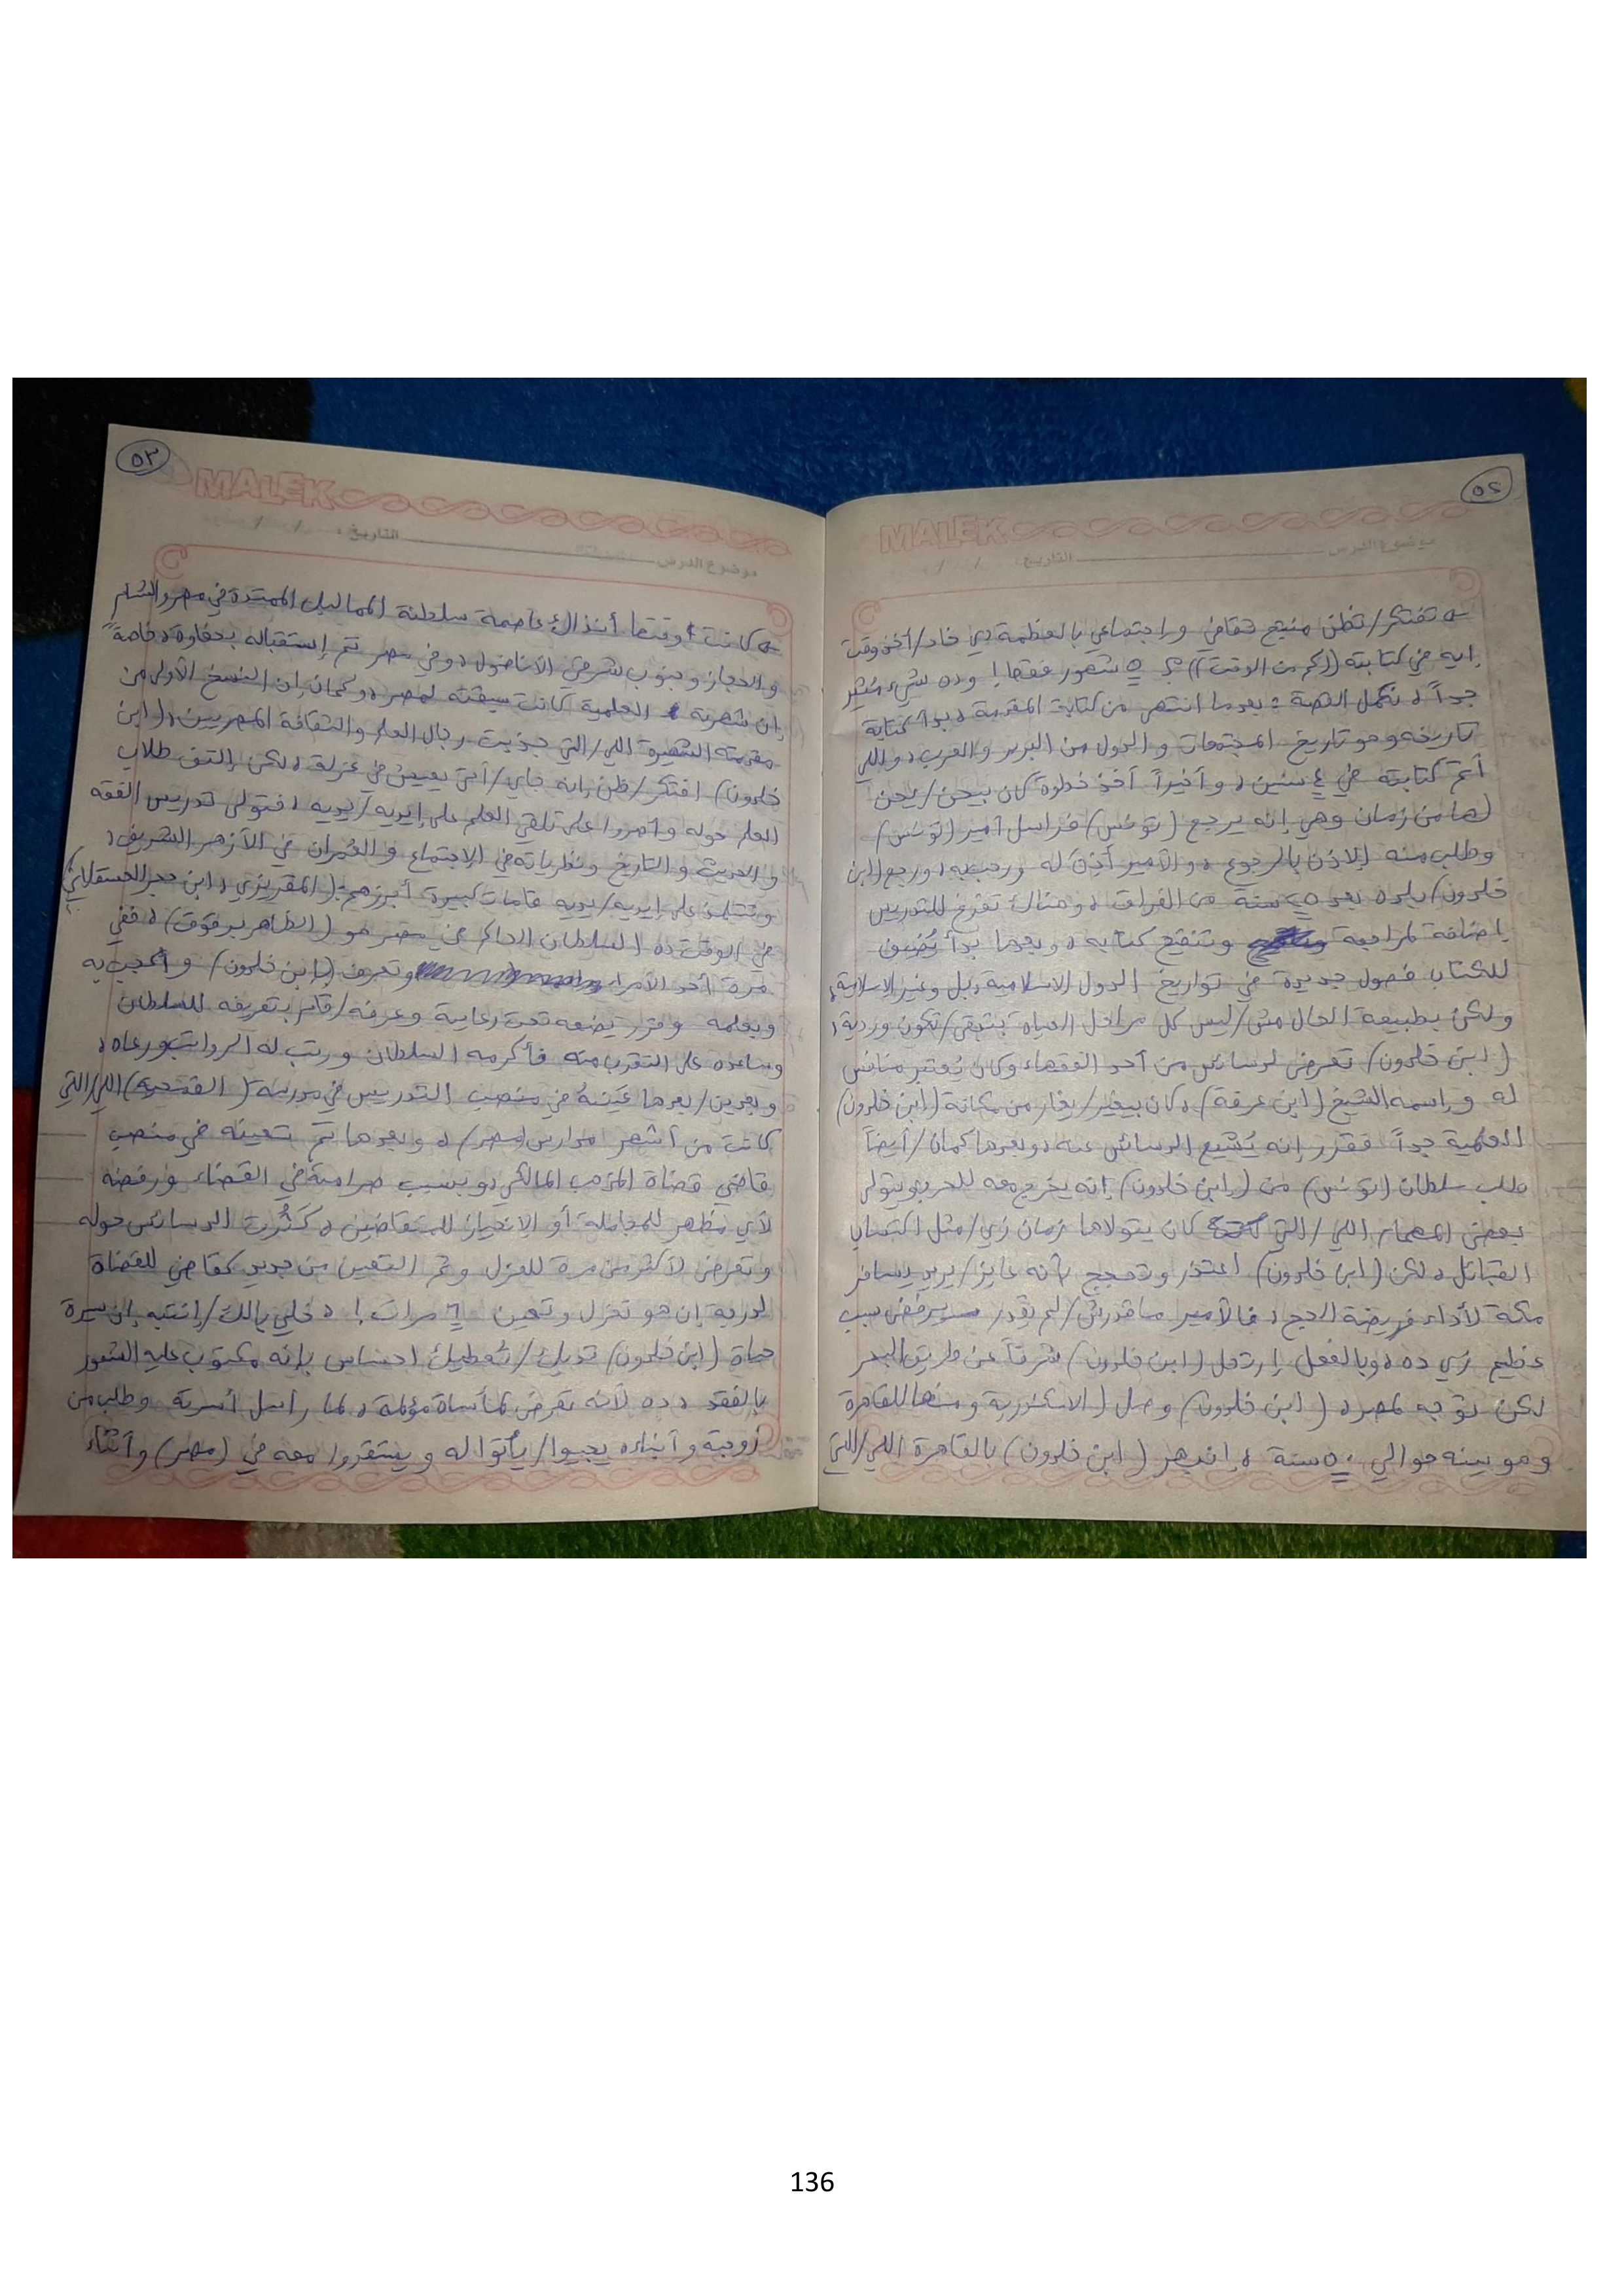 ٥٢
MALEK
موضوع الدرس التاريخ / /
تفتكر/تظن منتج ثقافي واجتماعي بالعظمة دي خاد/أخذ وقت
إيه في كتابته (كم من الوقت)؟ ٥ شهور فقط! وده شيء مثير
جداً، نكمل القصة: بعدما انتهى من كتابة المقدمة، بدأ كتابة
تاريخه وهو تاريخ المجتمعات والدول من البربر والعرب، واللي
أتم كتابته في ٤ سنين، وأخيراً أخذ خطوة كان بيحن/يحن
لها من زمان وهي إنه يرجع (تونس) فراسل أمير (تونس)
وطلب منه الإذن بالرجوع، والأمير أذن له ورحب به، ورجع (ابن
خلدون) بلده بعد سنة من الفراق، وهناك تفرغ للتدريس
بإضافة لمراجعة وتنقيح كتابه، وبعدها بدأ يُضيف
للكتاب فصول جديدة في تواريخ الدول الاسلامية، بل وغير الاسلامية،
ولكن بطبيعة الحال مش/ليس كل مراحل الحياه بتبقى/تكون وردية،
(ابن خلدون) تعرض لدسائس من أحد الفقهاء وكان يُعتبر منافس
له واسمه الشيخ (ابن عرفة)، كان بيغير/يغار من مكانة (ابن خلدون)
العلمية جداً فقرر إنه يُشيع الدسائس عنه، وبعدها كمان/أيضاً
طلب سلطان (تونس) من (ابن خلدون) إنه يخرج معه للحرب ويتولى
بعض المهام اللي/التي كان يتولاها زمان زي/مثل اكتساب
القبائل، لكن (ابن خلدون) اعتذر وتحجج بأنه عايز/يريد يسافر
مكة لأداء فريضة الحج، فالأمير ماقدرش/لم يقدر يرفض سبب
عظيم زي ده، وبالفعل ارتحل (ابن خلدون) شرقاً عن طريق البحر
لكن توجه لمصر، (ابن خلدون) وصل (الاسكندرية ومنها للقاهرة
وهو بسنه حوالي ٥٠ سنة، إنبهر (ابن خلدون) بالقاهرة اللي/التي
٥٣
MALEK
موضوع الدرس التاريخ / /
كانت وقتها آنذاك عاصمة سلطنة المماليك الممتدة في مصر والشام
والحجاز وجنوب شرقي الأناضول، وفي مصر تم إستقباله بحفاوة، خاصةً
إن شهرته العلمية كانت سبقته لمصر، وكمان إن النسخ الأولى من
مقدمته الشهيرة اللي/التي جذبت رجال العلم والثقافة المصريين، (ابن
خلدون) افتكر/ظن إنه جاي/أتى يعيش في عزلة، لكن إلتف طلاب
العلم حوله وأصروا على تلقي العلم على إيديه/يديه، فتولى تدريس الفقه
والحديث والتاريخ ونظرياته في الإجتماع والعُمران في الأزهر الشريف،
وتتلمذ على إيديه/يديه قامات كبيرة أبرزهم: (المقريزي، ابن حجر العسقلاني)
في الوقت ده السلطان الحاكم في مصر هو (الظاهر برقوق)، ففي
مرة أحد الأمراء وتعرف (بابن خلدون) وأُعجب به
وبعلمه وقرر يضعه تحت رعايته وعرفه/قام بتعريفه للسلطان
وساعده على التقرب منه فأكرمه السلطان ورتب له الرواتب ورعاه،
وبعدين/بعدها عَينهُ في منصب التدريس في مدرسة (القمحية) اللي/التي
كانت من أشهر مدارس (مصر)، وبعدها تم تعيينه في منصب
قاضي قضاة المذهب المالكي، وبسبب صرامته في القضاء ورفضه
لأي مظهر للمجاملة أو الإنحياز للمتقاضين، كَثُرت الدسائس حوله
وتعرض لأكثر من مرة للعزل وثم التعين من جديد كقاضي للقضاة
لدرجة إن هو تعزل وتعين ٦ مرات!، خلي بالك/إنتبه إن سيرة
حياة (ابن خلدون) تديك/تُعطيك احساس بإنه مكتوب عليه الشعور
بالفقد، ده لأنه تعرض لمأساة مؤلمة، لما راسل أسرته وطلب من
زوجته وأبناءه يجيوا/يأتوا له ويستقروا معه في (مصر) وأثناء
136